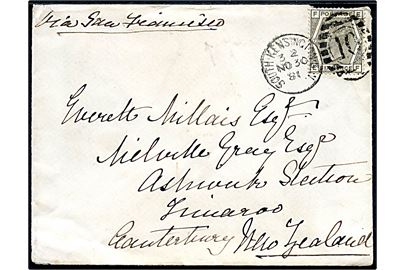 Via San Francisco
SOUTH KENSINGTON
2
NO 30
81
Everett Millais Esqr.
Melville Gray Esqr
Ashwick Station
Timaroo
Canterbury New Zealand